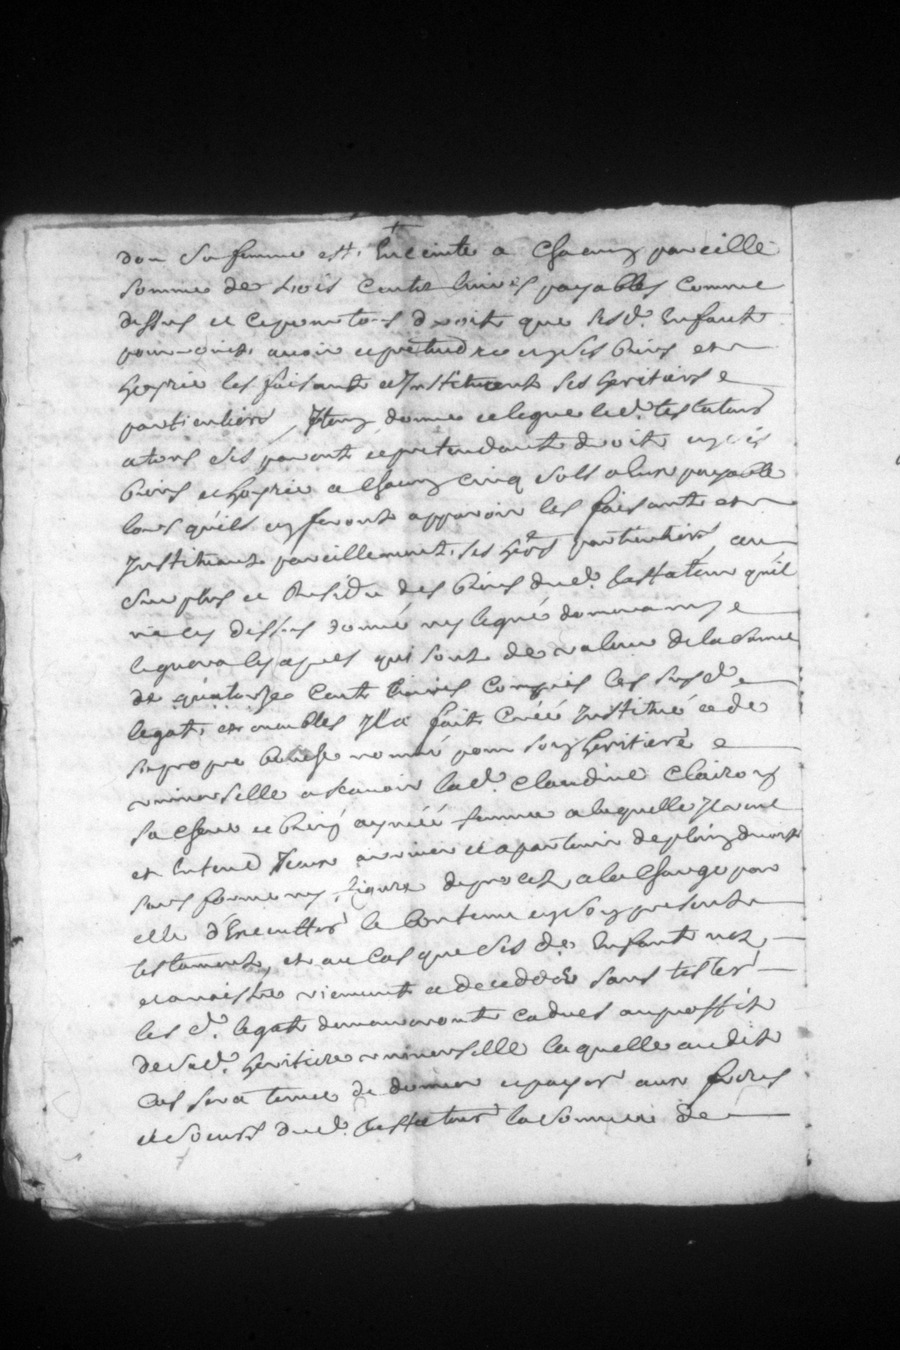 don sa femme est Enceinte a Chacung pareille
somme de trois Cents livres payables Comme
dessus et ce pour tous droits que sesd. Enfants
pourroint avoir et prétendre en ses biens et
hoyrie les faisant et Instituant ses heritiers
particuliers, Item donne et legue led. testateur
a tous ses parents et pretendants droits en ses
biens et hoyrie a Chacung cinq sols a leur payable
lors qu'ils en feront apparoir les faisant et
Instituant pareillement ses hers particuliers, au
surplus et Residu des biens dud. testateur qu'il
n'a cy dessus donné ny legué donnera ny
leguera cy apres qui sont de valeur de la somme
de quatorze Cents livres Compris les susd.
legats et meubles Il a fait Créé Institué et de
sa propre bouche nommé pour son heritiere
universelle a scavoir lad. Claudine Clairon
sa Chere et bien aymée femme a laquelle Il veut
et Entend Iceux arriver et apartenir de plain droit
sans forme ny figure de procez, a la Charge par
elle d'Executter le Contenu en son present
testament, et au Cas que ses ds. Enfants nez
et a naistre viennent a decedder sans tester
les d. legats demeureront caducs au proffit
de sad. heritiere universelle laquelle audit
Cas sera tenue de donner et payer aux freres
et soeurs dud. testateur la somme de